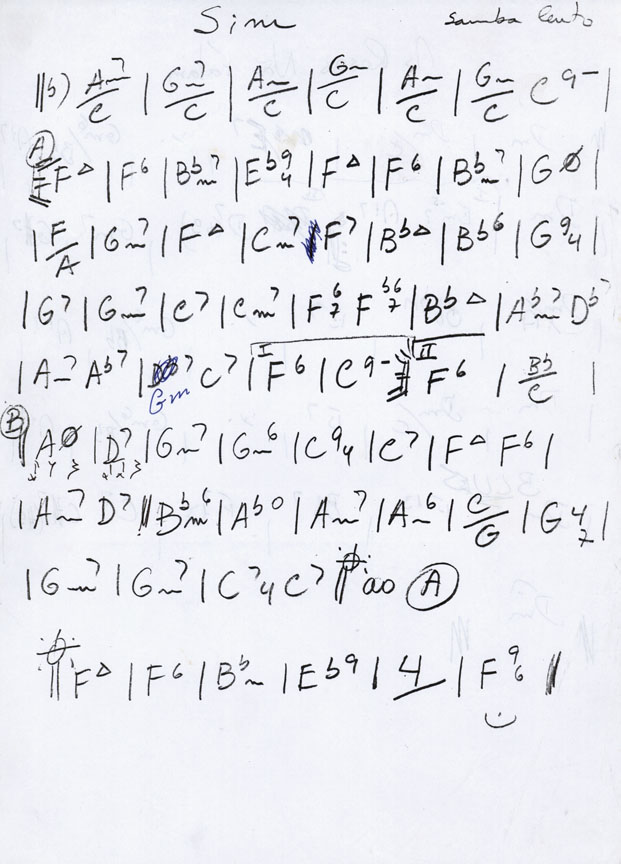 Sim samba lento
||b) Am7/C | Gm7/C | Am/C | Gm/C | Am/C | Gm/C C9- |
A
FΔ | F6 | Bbm7 | Eb94 | FΔ | F6 | Bbm7 | GØ |
| F/A | Gm7 | FΔ | Cm7 F7 | BbΔ | Bb6 | G94 |
| G7 | Gm7 | C7 | Cm7 | F67 Fb67 | BbΔ | Abm7 Db7
| Am7 Ab7 | Gm C7 | I F6 | C9- II F6 | Bb/C |
B
AØ | D7 | Gm7 | Gm6 | C94 | C7 | FΔ F6 |
| Am7 D7 || Bbm6 | Abo | Am7 | Am6 | C/G | G47 |
| Gm7 | Gm7 | C74 C7 || ao A
|| FΔ | F6 | Bbm | Eb9 | 4 | F96 ||